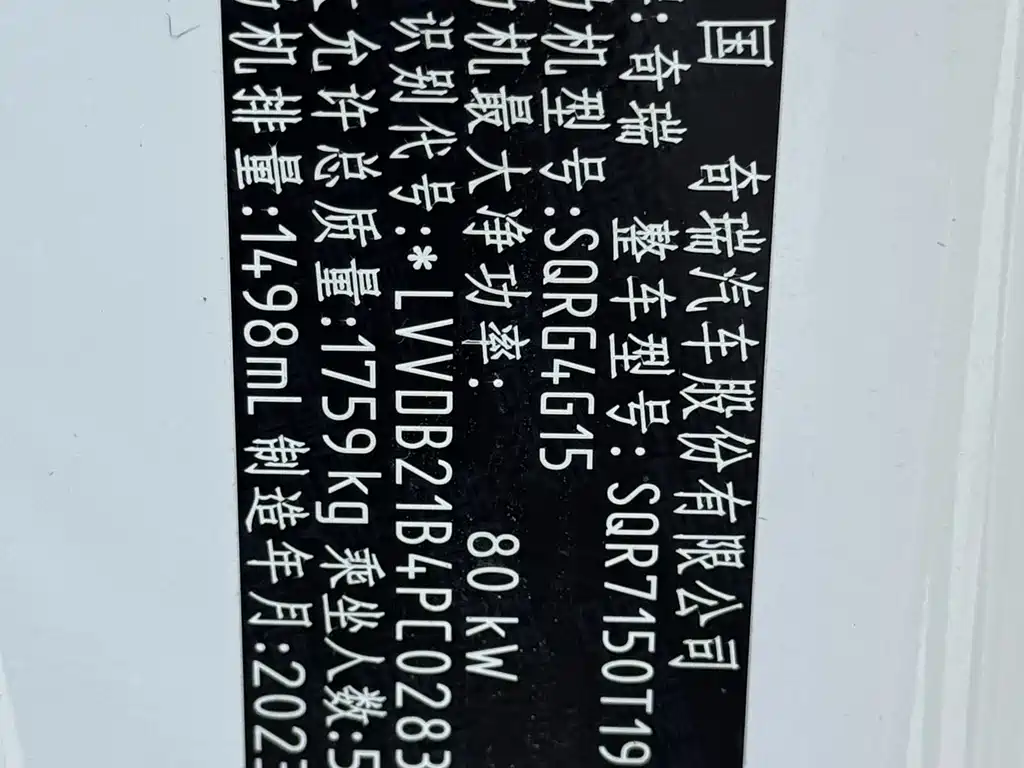 国 奇瑞汽车股份有限公司
: 奇瑞 整车型号:SQR7150T19
机型号:SQRG4G15
机最大净功率: 80kW
识别代号:*LVVDB21B4PC0283
允许总质量:1759kg 乘坐人数:5
机排量:1498mL 制造年月:202